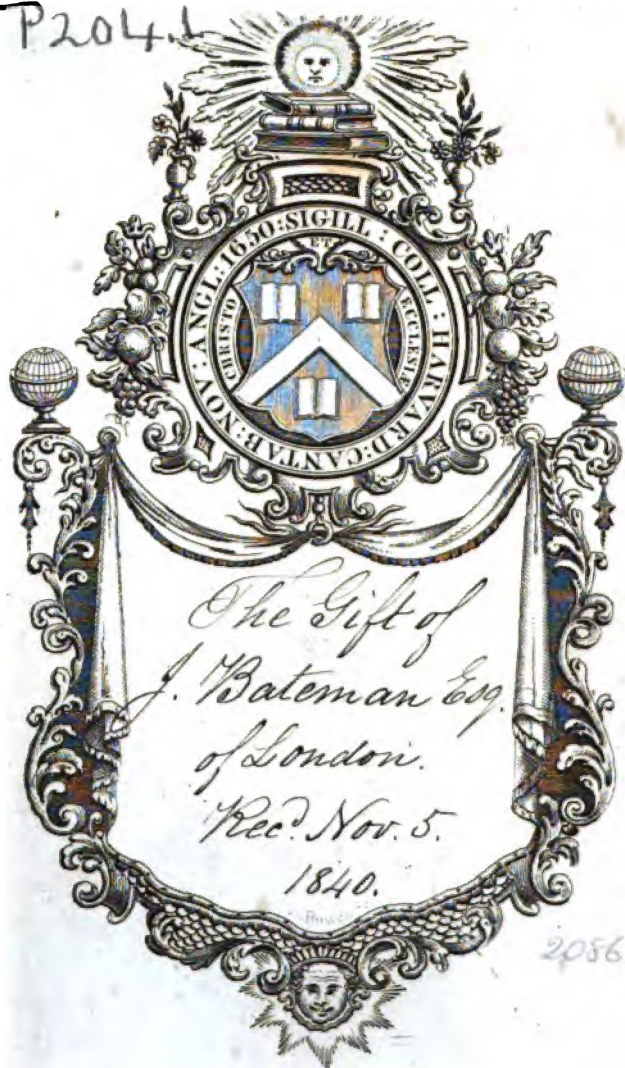 P204.1
SIGILL : COLL : HARVARD: CANTAB: NOV: ANGL: 1650:
ET
CHRISTO
ECCLESIÆ
The Gift of
J. Bateman Esq.
of London.
Recd. Nov. 5.
1840.
2086